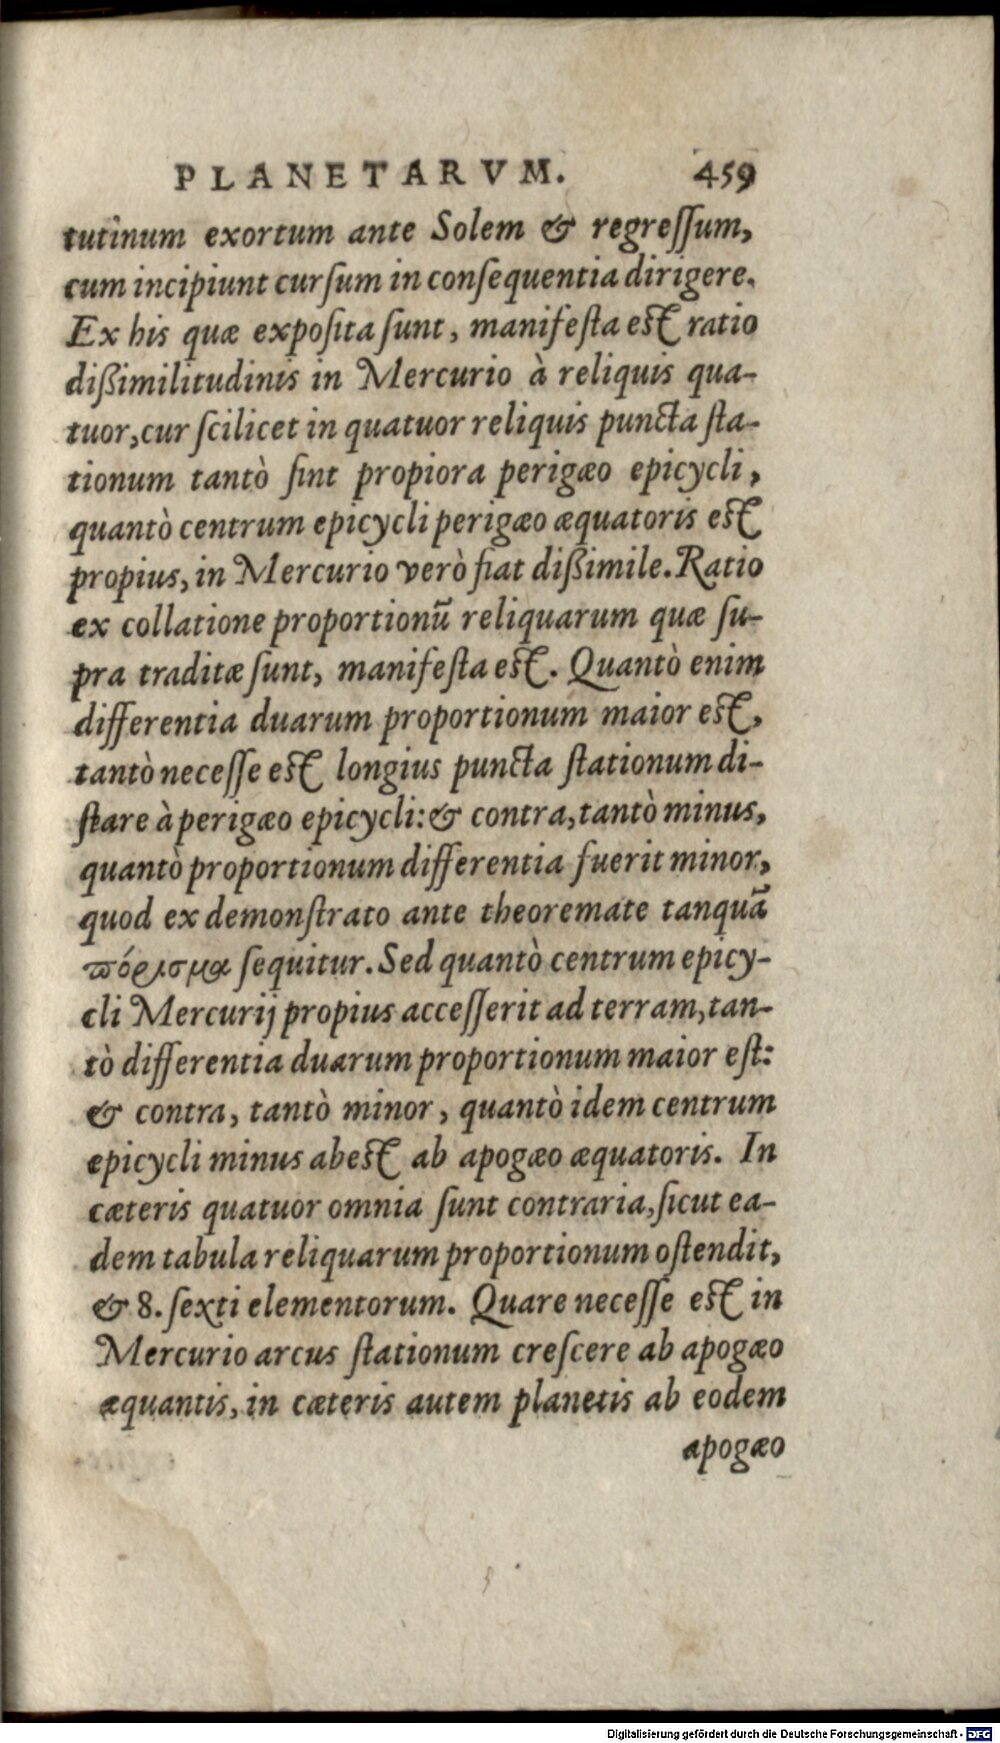 PLANETARVM. 459
tutinum exortum ante Solem & regreſſum,
cum incipiunt curſum in conſequentia dirigere.
Ex his quæ expoſita ſunt, manifeſta eſt ratio
dißimilitudinis in Mercurio à reliquis qua-
tuor, cur ſcilicet in quatuor reliquis puncta ſta-
tionum tantò ſint propiora perigæo epicycli,
quantò centrum epicycli perigæo æquatoris eſt
propius, in Mercurio verò fiat dißimile. Ratio
ex collatione proportionū reliquarum quæ ſu-
pra traditæ ſunt, manifeſta eſt. Quantò enim
differentia duarum proportionum maior eſt,
tantò neceſſe eſt longius puncta ſtationum di-
ſtare à perigæo epicycli: & contra, tantò minus,
quantò proportionum differentia fuerit minor,
quod ex demonſtrato ante theoremate tanquã
πόρισμα ſequitur. Sed quantò centrum epicy-
cli Mercurij propius acceſſerit ad terram, tan-
tò differentia duarum proportionum maior eſt:
& contra, tantò minor, quantò idem centrum
epicycli minus abeſt ab apogæo æquatoris. In
cæteris quatuor omnia ſunt contraria, ſicut ea-
dem tabula reliquarum proportionum oſtendit,
& 8. ſexti elementorum. Quare neceſſe eſt in
Mercurio arcus ſtationum creſcere ab apogæo
æquantis, in cæteris autem planetis ab eodem
apogæo
Digitalisierung gefördert durch die Deutsche Forschungsgemeinschaft - DFG